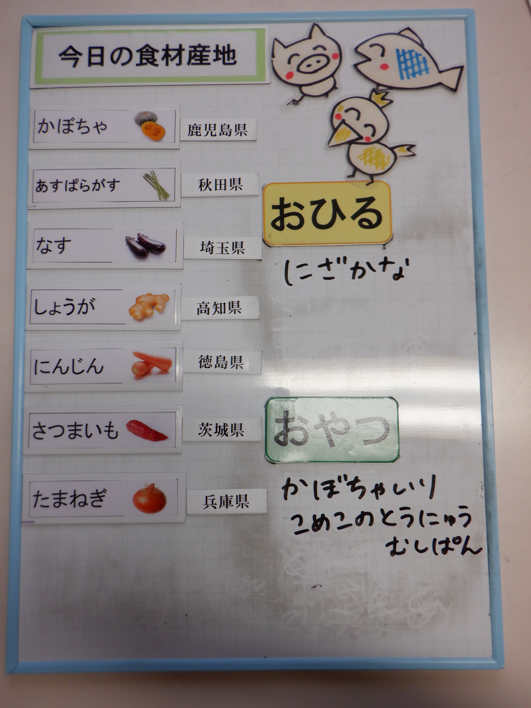 今日の食材産地
かぼちゃ 鹿児島県
あすぱらがす 秋田県
なす 埼玉県
しょうが 高知県
にんじん 徳島県
さつまいも 茨城県
たまねぎ 兵庫県
おひる
にざかな
おやつ
かぼちゃいり
こめこのとうにゅう
むしぱん